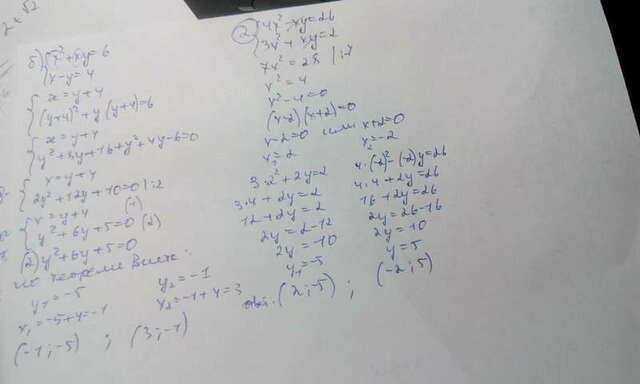 2+√2
б) { x² + xy = 6
x - y = 4
{ x = y + 4
(y+4)² + y(y+4) = 6
{ x = y + 4
y² + 8y + 16 + y² + 4y - 6 = 0
{ x = y + 4
2y² + 12y + 10 = 0 | :2
{ x = y + 4 (1)
y² + 6y + 5 = 0 (2)
(2) y² + 6y + 5 = 0
по теореме Виета:
y₁ = -5 y₂ = -1
x₁ = -5+4 = -1 x₂ = -1+4 = 3
(-1; -5) ; (3; -1)
② { 4x² - xy = 26
3x² + xy = 2
7x² = 28 | :7
x² = 4
x² - 4 = 0
(x-2)(x+2) = 0
x - 2 = 0 или x + 2 = 0
x₁ = 2 x₂ = -2
3·2² + 2y = 2 4·(-2)² - (-2)y = 26
3·4 + 2y = 2 4·4 + 2y = 26
12 + 2y = 2 16 + 2y = 26
2y = 2 - 12 2y = 26 - 16
2y = -10 2y = 10
y₁ = -5 y = 5
(2; -5) ; (-2; 5)